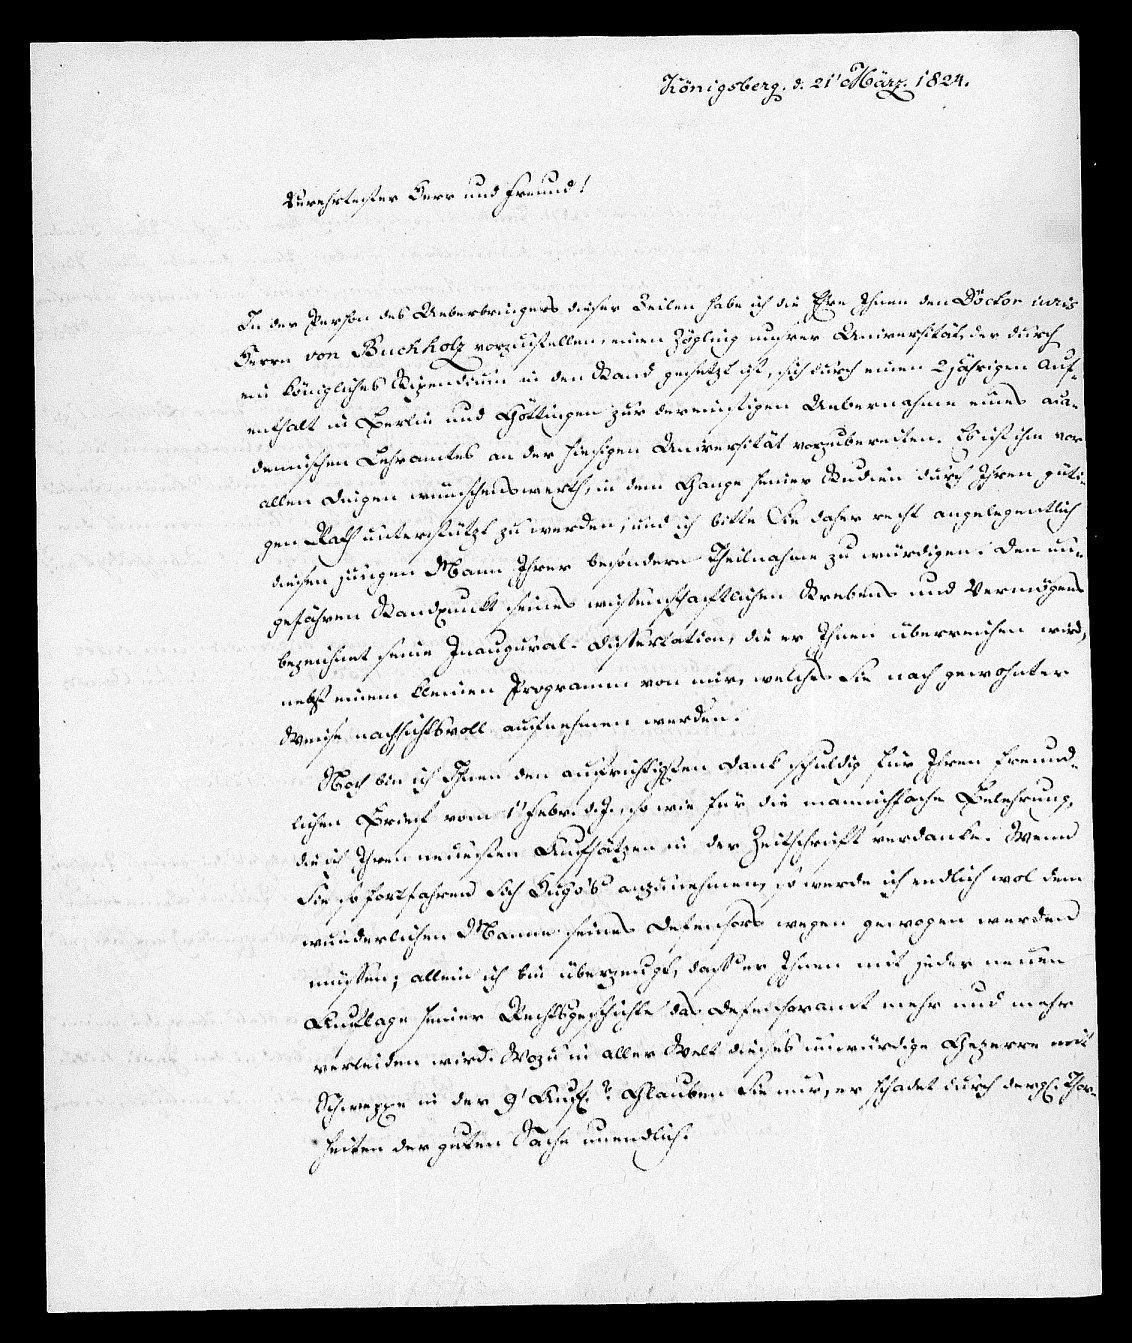 Königsberg, d. 21' März. 1824.
Verehrtester Herr und Freund!
In der Person des Ueberbringers dieser Zeilen habe ich die Ehre Ihnen den Doctor iuris
Herrn von Buchholz vorzustellen, einen Zögling unsrer Universität, der durch
ein königliches Stipendium in den Stand gesetzt ist, sich durch einen 2jährigen Auf-
enthalt in Berlin und Göttingen zur dereinstigen Uebernahme eines aca-
demischen Lehramtes an der hiesigen Universität vorzubereiten. Es ist ihm vor
allen Dingen wünschenswerth, in dem Gange seiner Studien durch Ihren güti-
gen Rath unterstützt zu werden, und ich bitte Sie daher recht angelegentlich
diesen jungen Mann Ihrer besondern Theilnahme zu würdigen. Den un-
gefähren Standpunkt seines wissenschaftlichen Strebens und Vermögens
bezeichnet seine Inaugural-Dissertation, die er Ihnen überreichen wird,
nebst einem kleinen Programm von mir, welches Sie nach gewohnter
Weise nachsichtsvoll aufnehmen werden.
Noch bin ich Ihnen den aufrichtigsten Dank schuldig für Ihren freund-
lichen Brief vom 1' Febr. d. J. so wie für die mannichfache Belehrung,
die ich Ihren neuesten Aufsätzen in der Zeitschrift verdanke. Wenn
Sie so fortfahren sich Hugo's anzunehmen, so werde ich endlich wol dem
wunderlichen Manne seines Defensors wegen gewogen werden
müssen; allein ich bin überzeugt, dass er Ihnen mit jeder neuen
Auflage seiner Rechtsgeschichte das Defensoramt mehr und mehr
verleiden wird. Wozu in aller Welt dieses unwürdige Gezerre mit
Schweppe in der 9' Aufl.? Glauben Sie mir, er schadet durch dergl. Thor-
heiten der guten Sache unendlich.